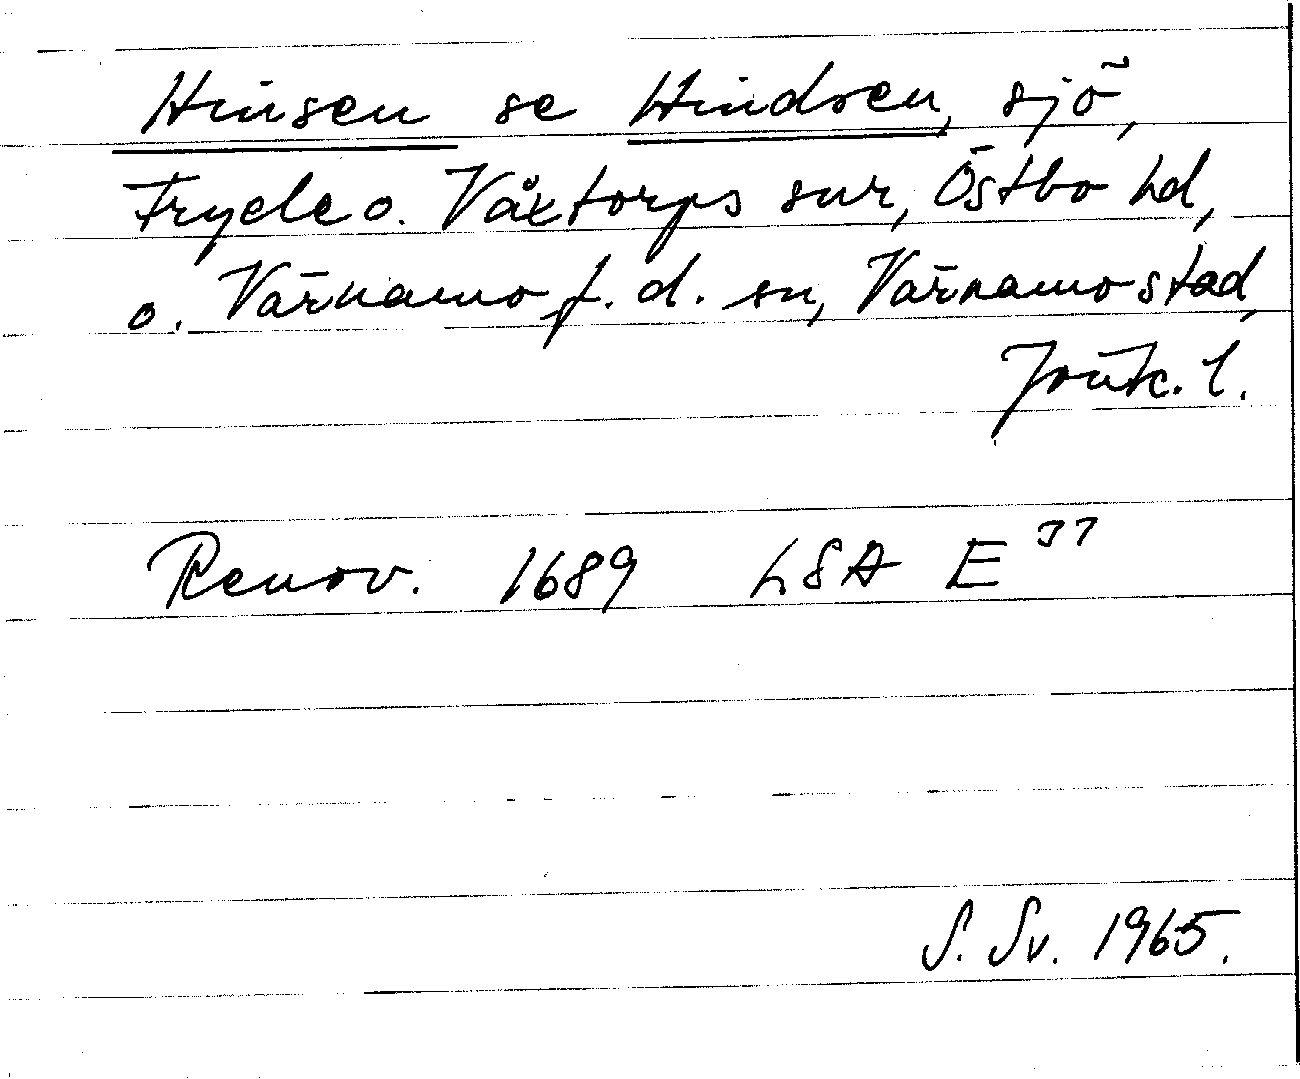 Hinsen se Hindsen, sjö,
Fryele o. Våxtorps snr, Östbo hd,
o. Värnamo f. d. sn, Värnamo stad,
Jönk. l.
Renov. 1689 LSA E 77
S. Sv. 1965.